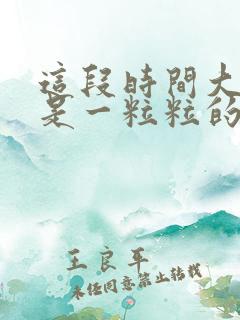 這段時間大
是一粒粒的
王良平
未经同意禁止转载